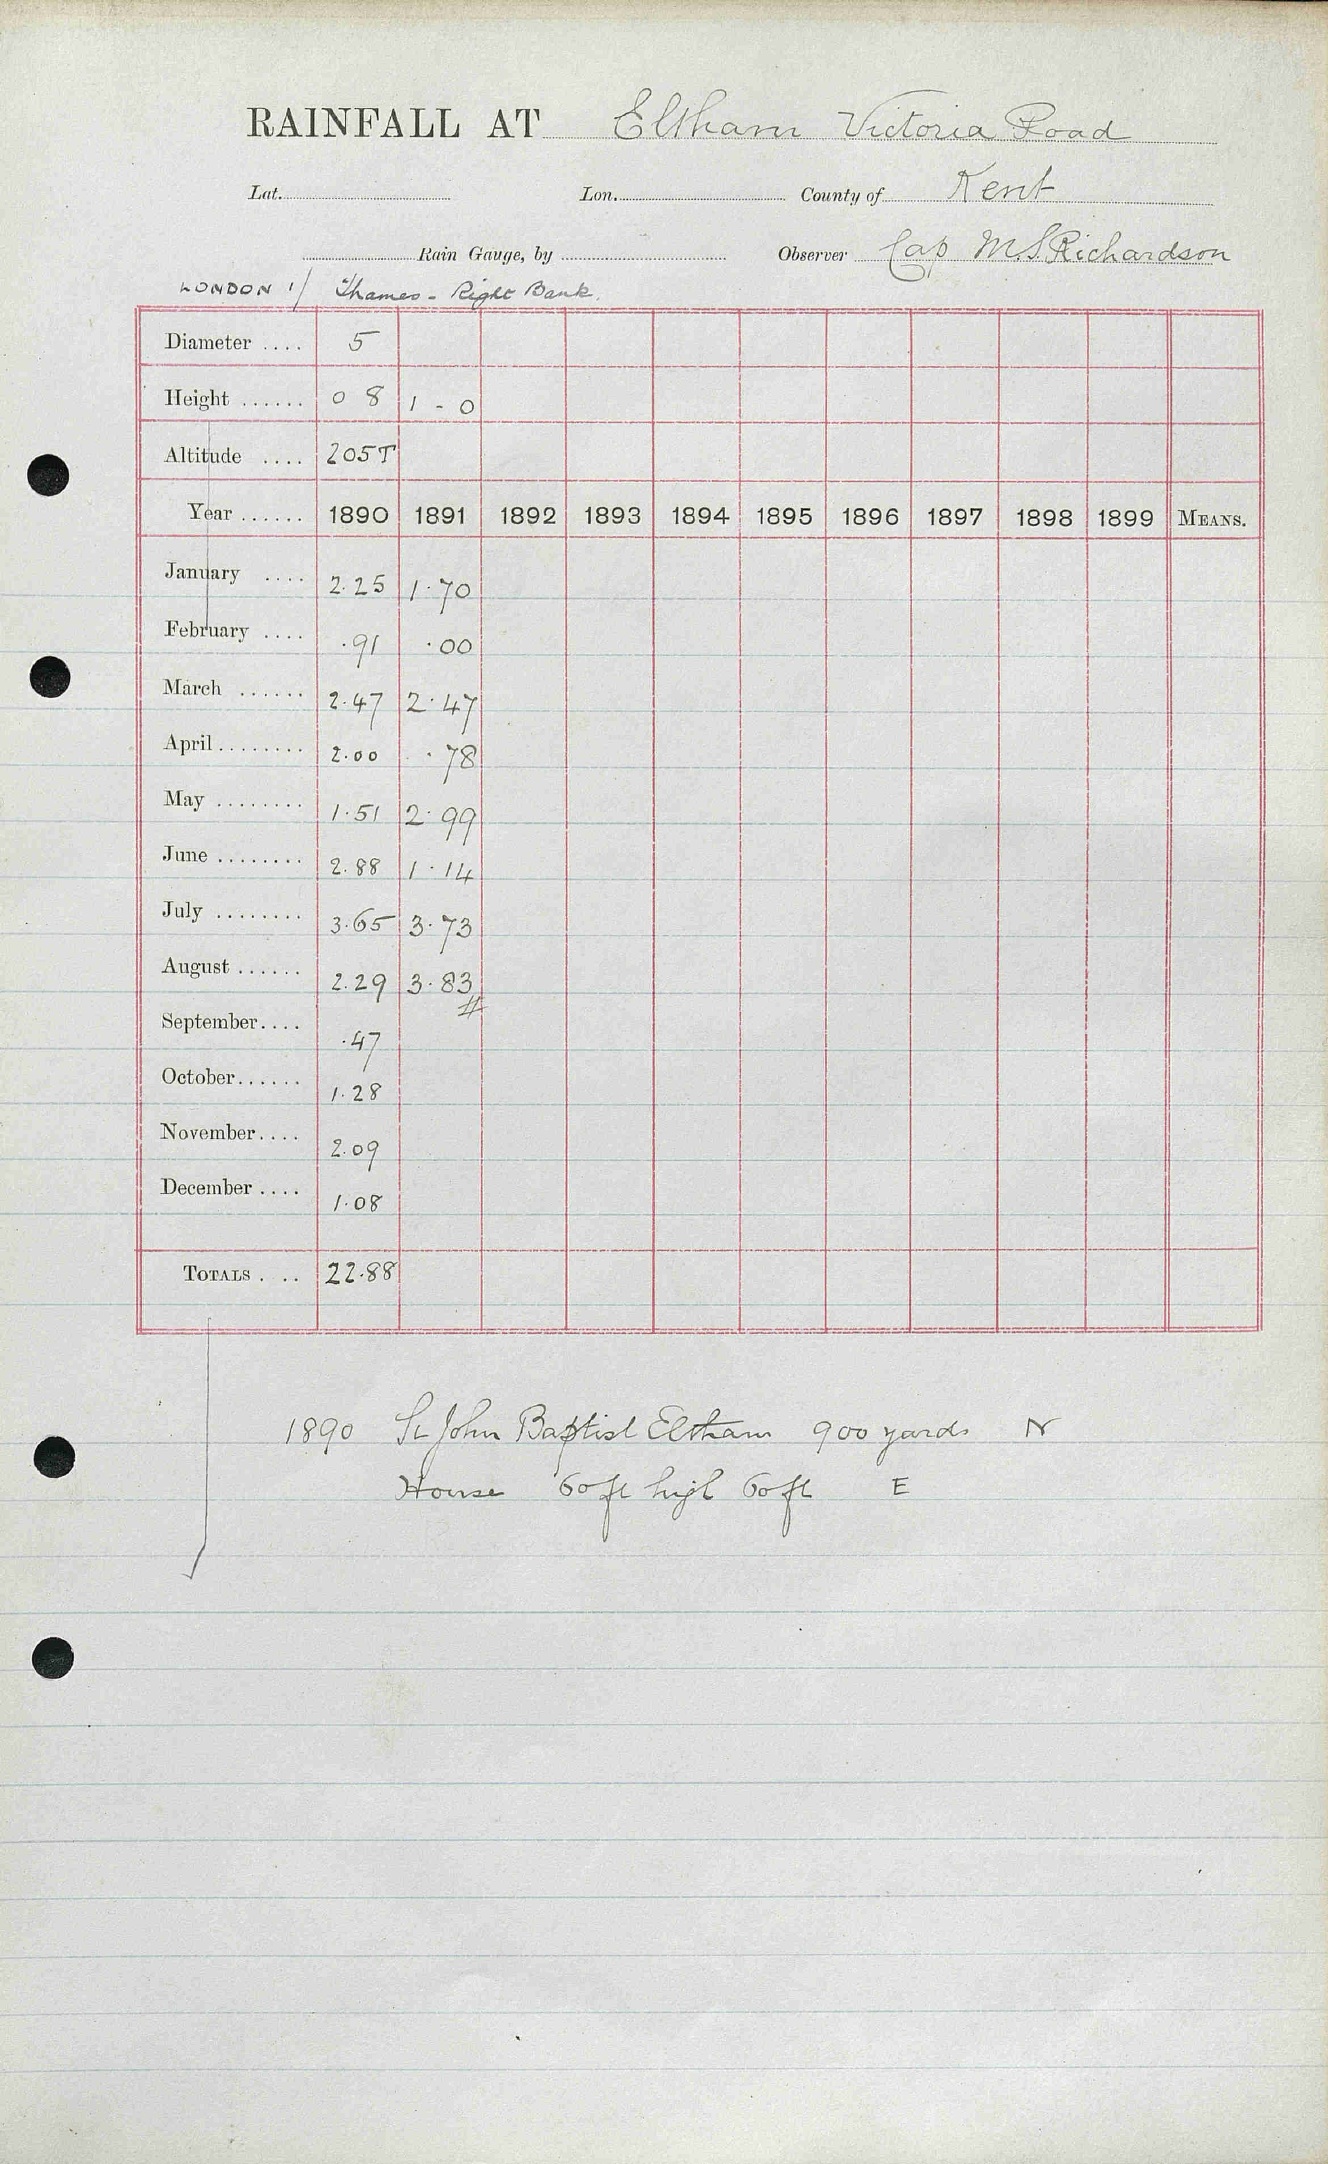 RAINFALL AT Eltham Victoria Road
Lat. Lon. County of Kent
Rain Gauge, by Observer Cap M.S. Richardson
LONDON 1/ Thames - Right Bank.
Diameter .... 5
Height ...... 0 8 1 - 0
Altitude .... 205T
Year ...... 1890 1891 1892 1893 1894 1895 1896 1897 1898 1899 MEANS.
January .... 2.25 1.70
February .... .91 .00
March ...... 2.47 2.47
April ........ 2.00 .78
May ........ 1.51 2.99
June ........ 2.88 1.14
July ........ 3.65 3.73
August ...... 2.29 3.83
September.... .47
October...... 1.28
November.... 2.09
December .... 1.08
TOTALS . .. 22.88
1890 St John Baptist Eltham 900 yards N
House 60 ft high 60 ft E